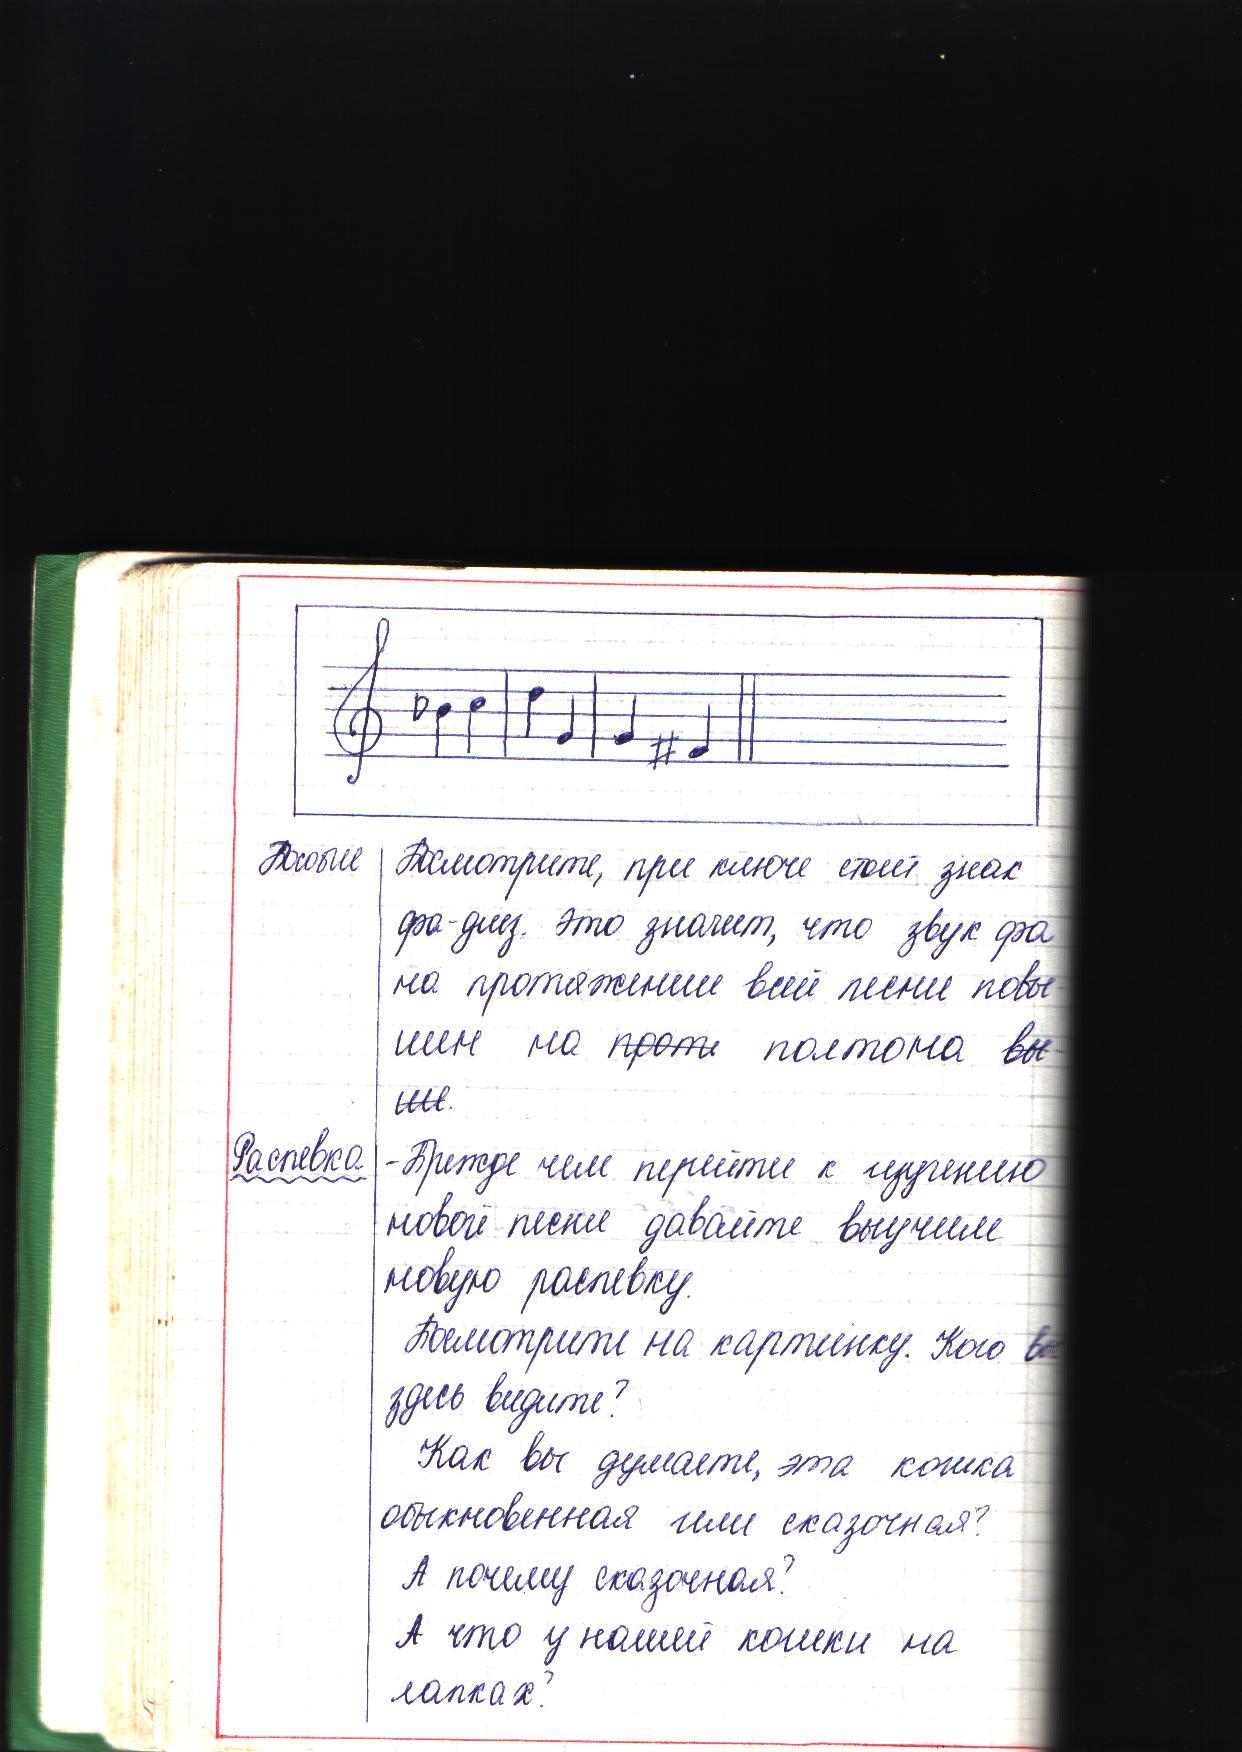 Пособие
Посмотрите, при ключе стоит знак
фа-диез. Это значит, что звук фа
на протяжении всей песни повы-
шен на прот полтона вы-
ше.
Распевка
- Прежде чем перейти к изучению
новой песни давайте выучим
новую распевку.
Посмотрите на картинку. Кого вы
здесь видите?
Как вы думаете, эта кошка
обыкновенная или сказочная?
А почему сказочная?
А что у нашей кошки на
лапках?